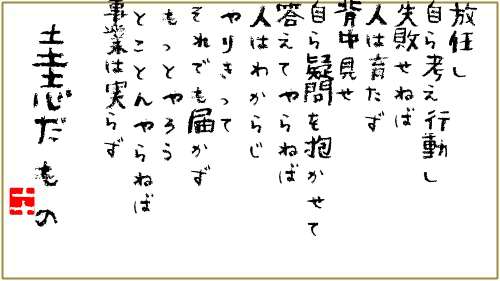 放任し
自ら考え行動し
失敗せねば
人は育たず
背中見せ
自ら疑問を抱かせて
答えてやらねば
人はわからじ
やりきって
それでも届かず
もっとやろう
とことんやらねば
事業は実らず
圭志だもの